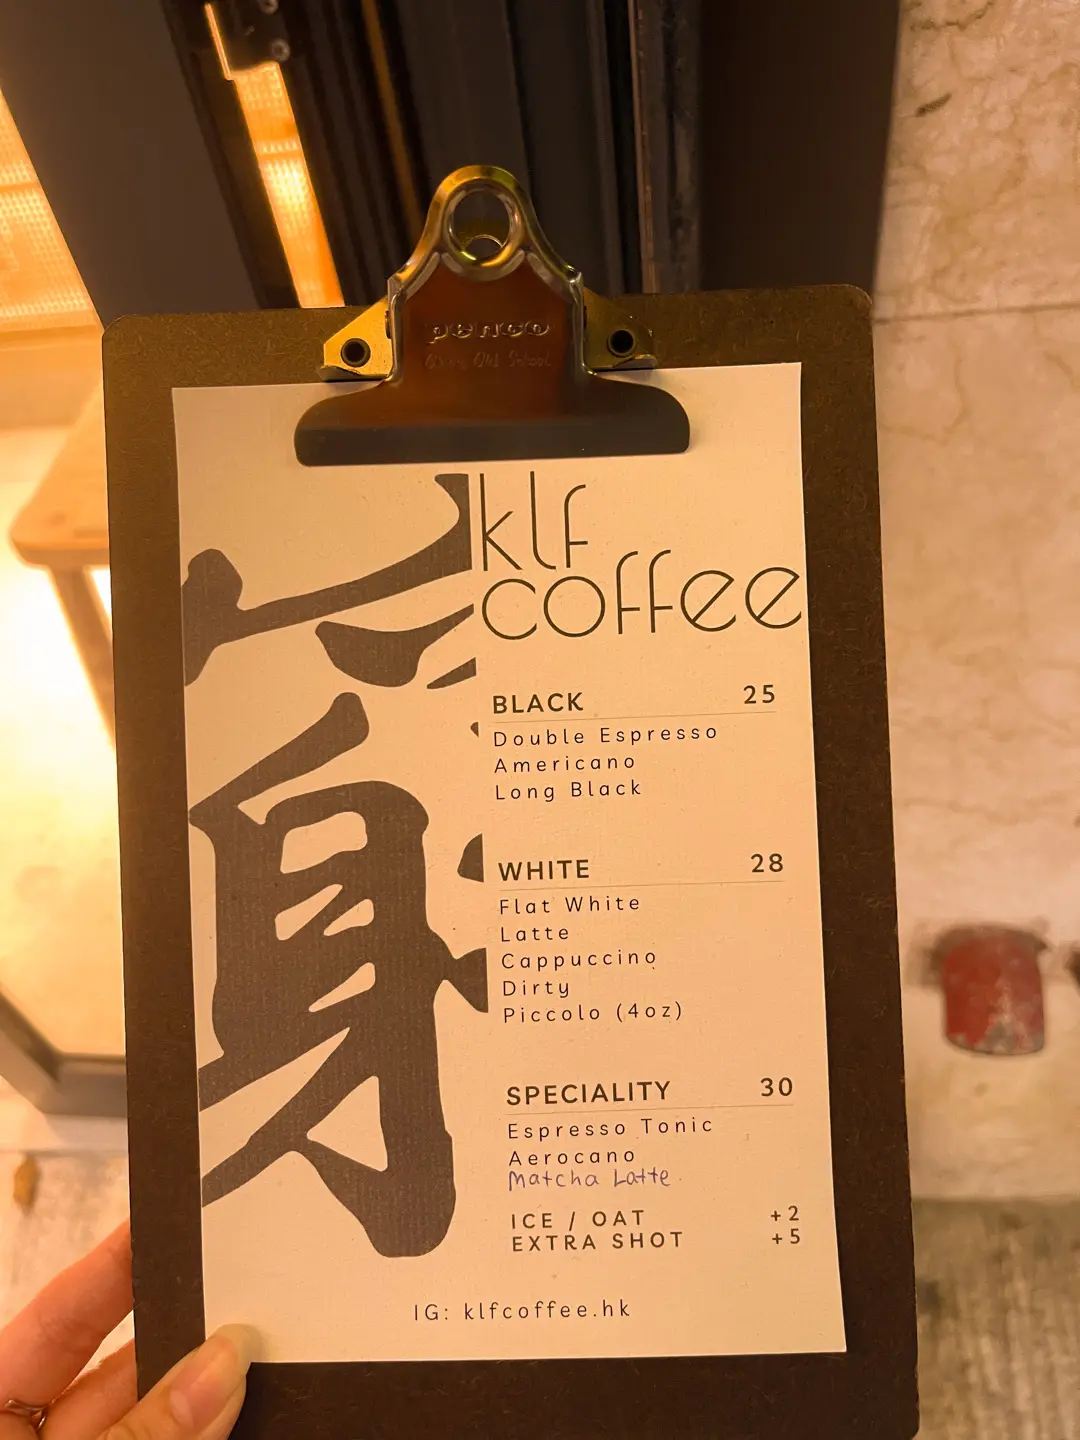 penco
klf
coffee
BLACK 25
Double Espresso
Americano
Long Black
WHITE 28
Flat White
Latte
Cappuccino
Dirty
Piccolo (4oz)
SPECIALITY 30
Espresso Tonic
Aerocano
Matcha Latte
ICE / OAT +2
EXTRA SHOT +5
IG: klfcoffee.hk